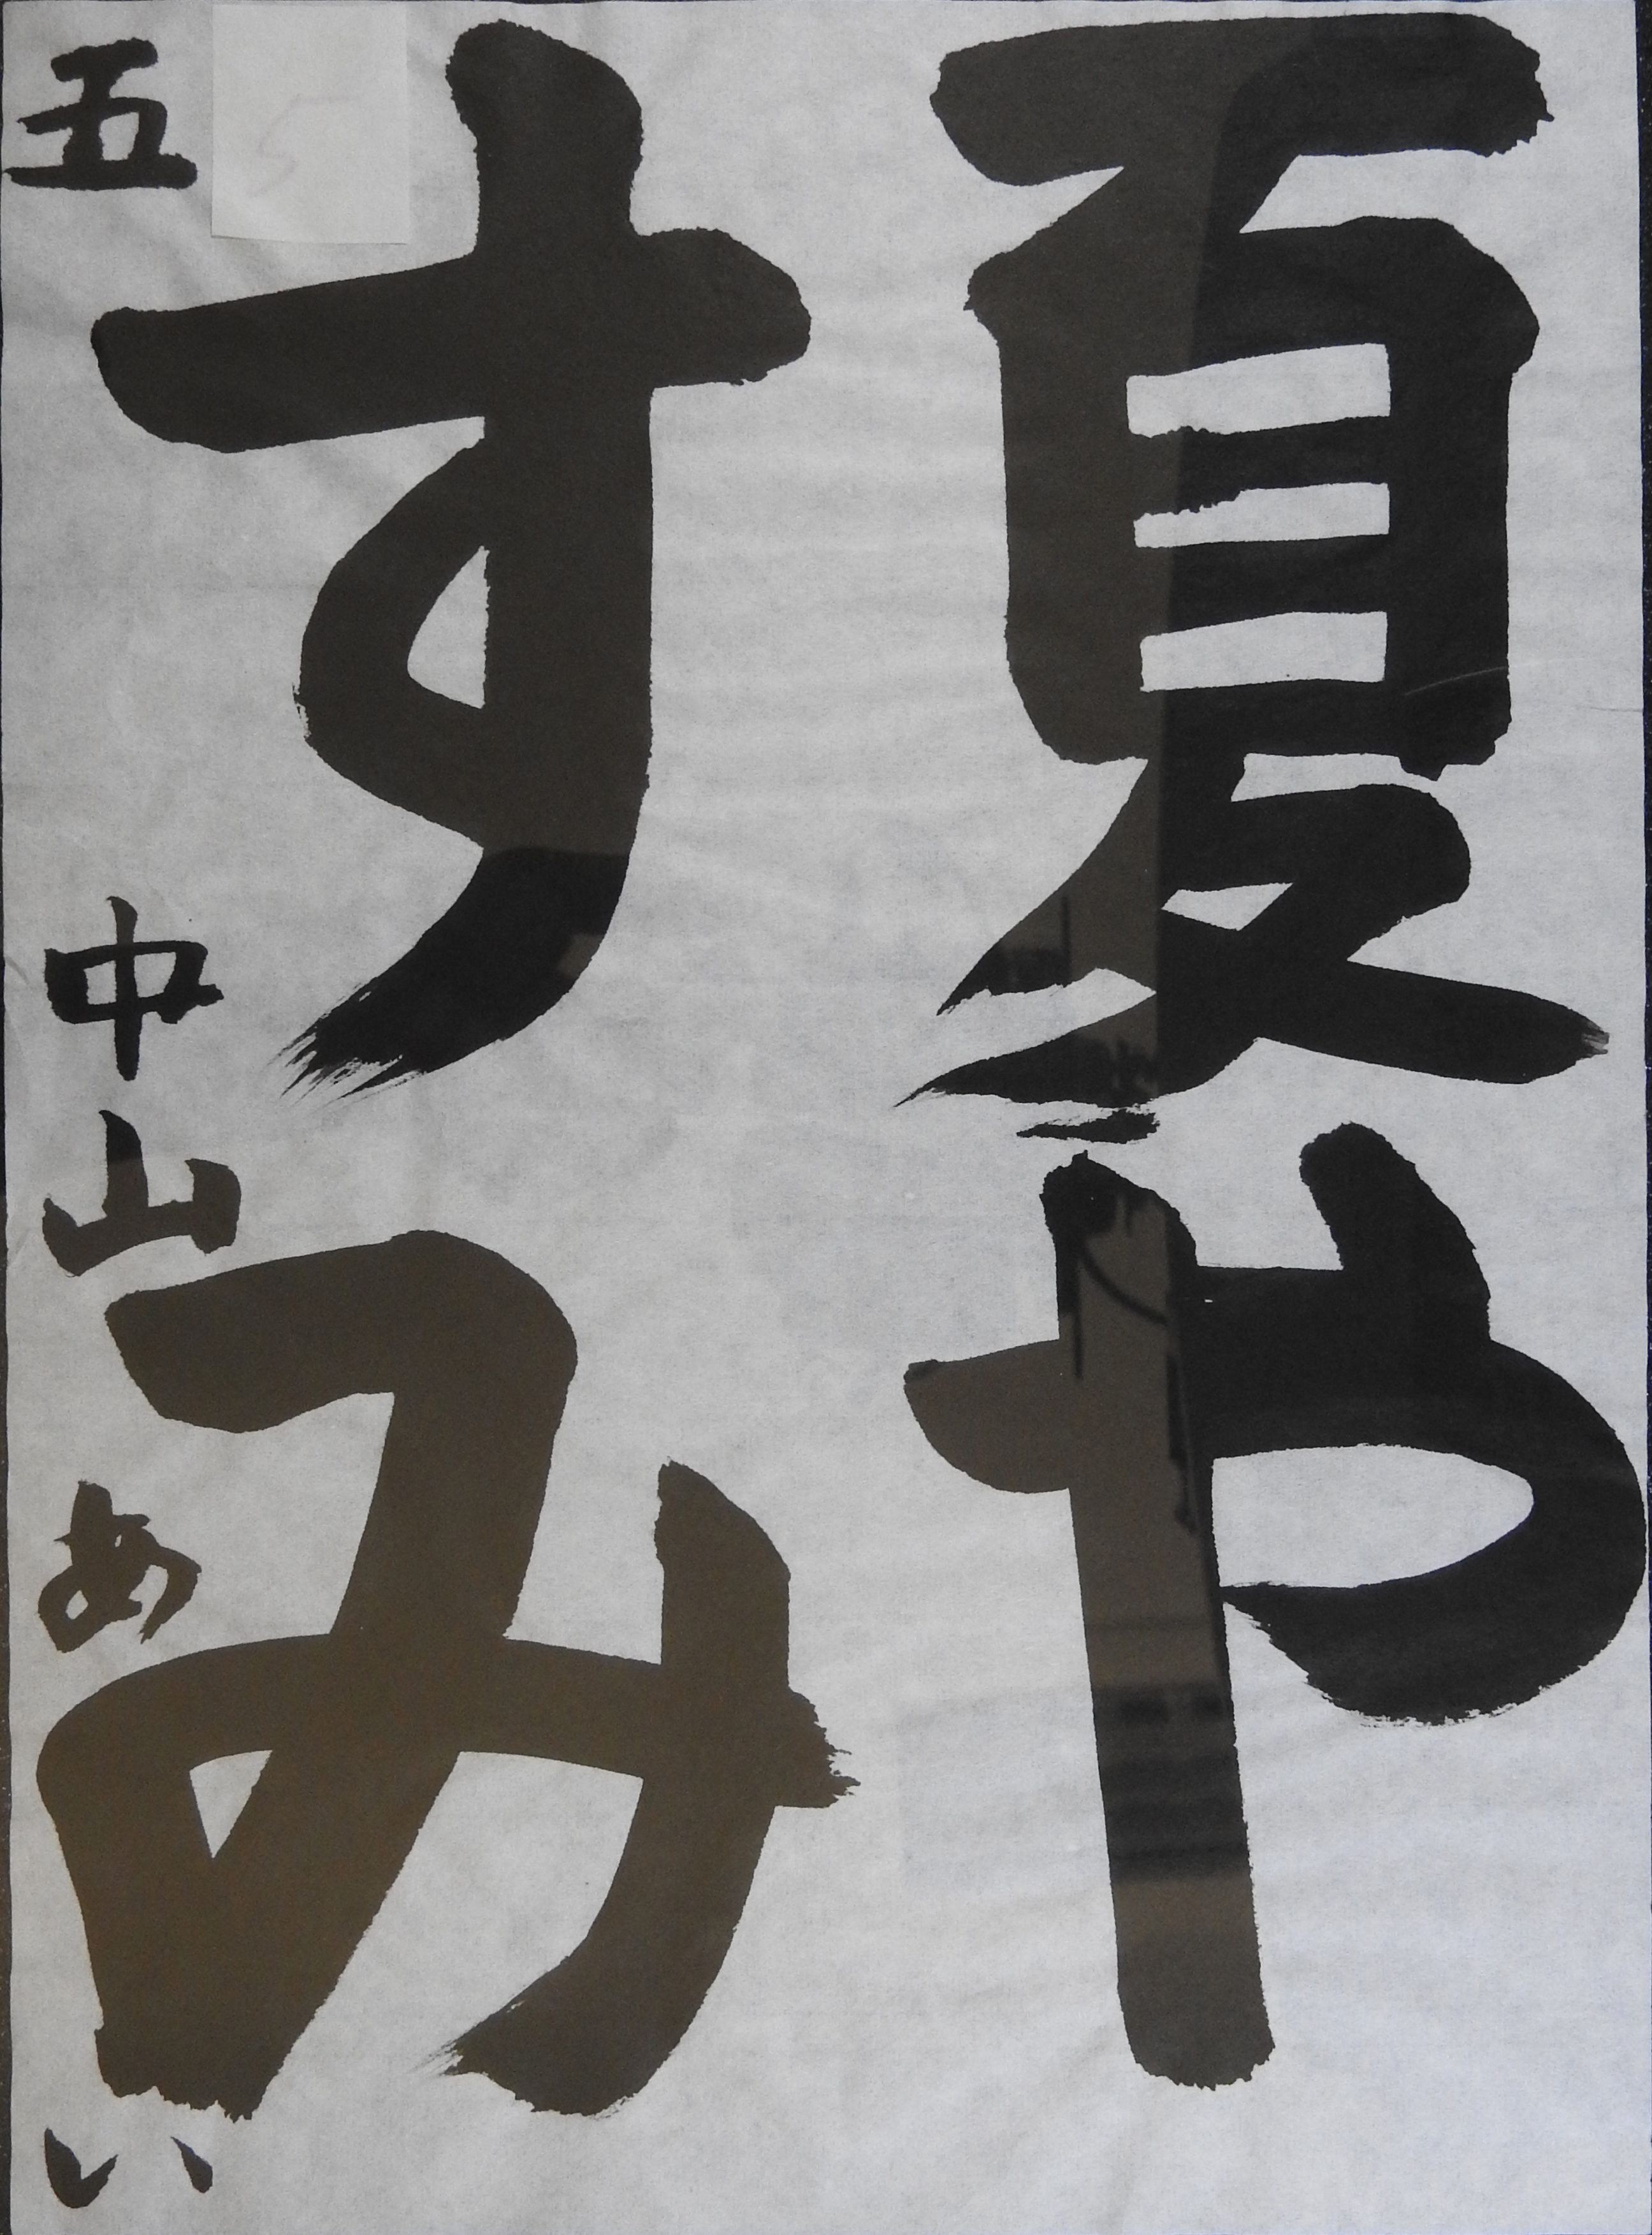 夏や
すみ
五 中山 あい
5